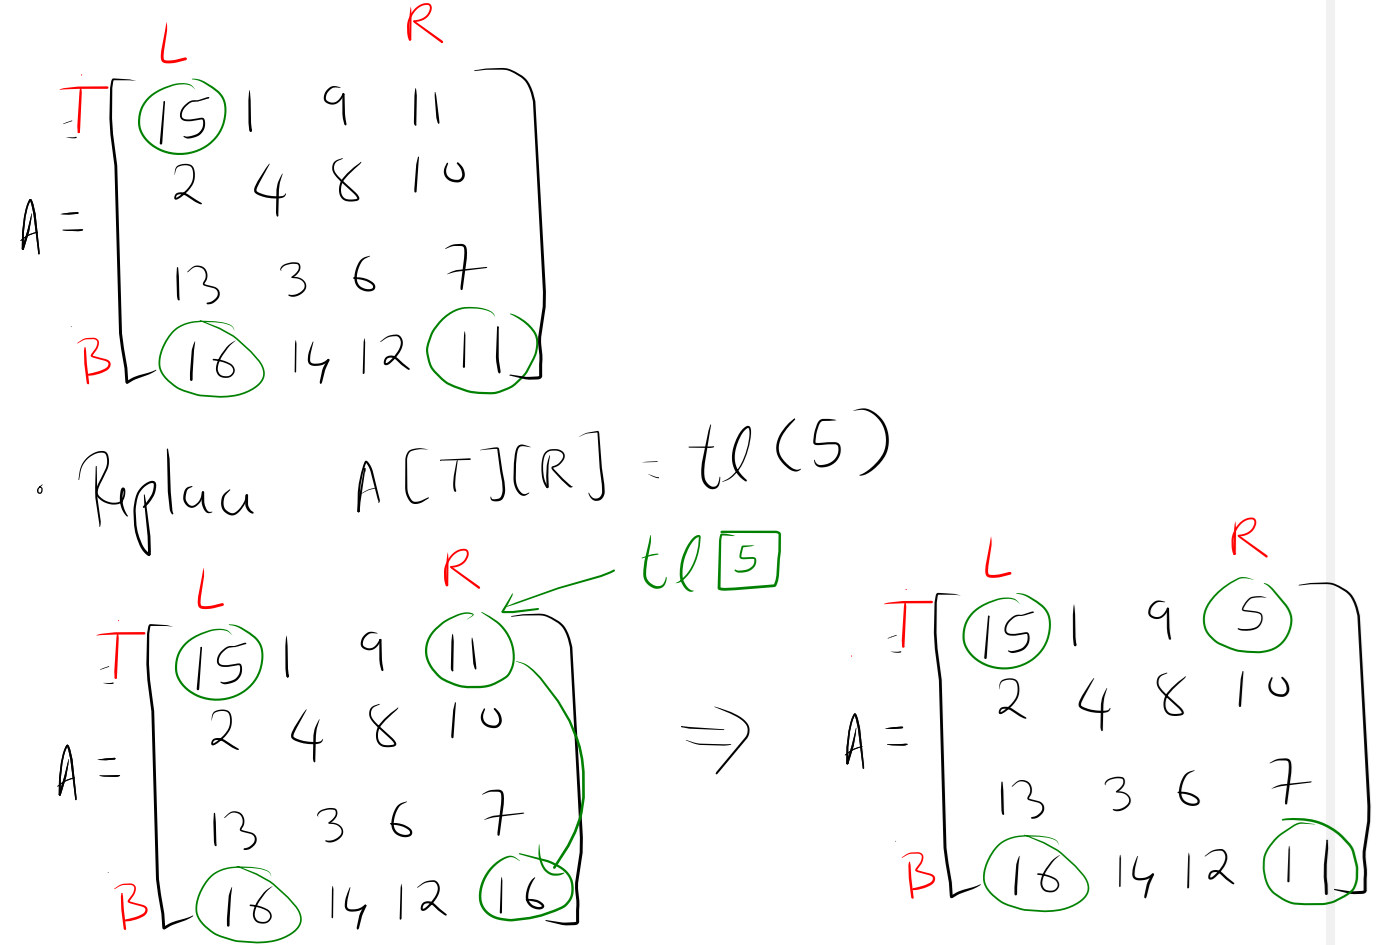 L R
T 15 1 9 11
2 4 8 10
A =
13 3 6 7
B 16 14 12 11
• Replace A[T][R] = tl(5)
tl 5
L R
T 15 1 9 11
2 4 8 10
A =
13 3 6 7
B 16 14 12 16
⇒
L R
T 15 1 9 5
2 4 8 10
A =
13 3 6 7
B 16 14 12 11